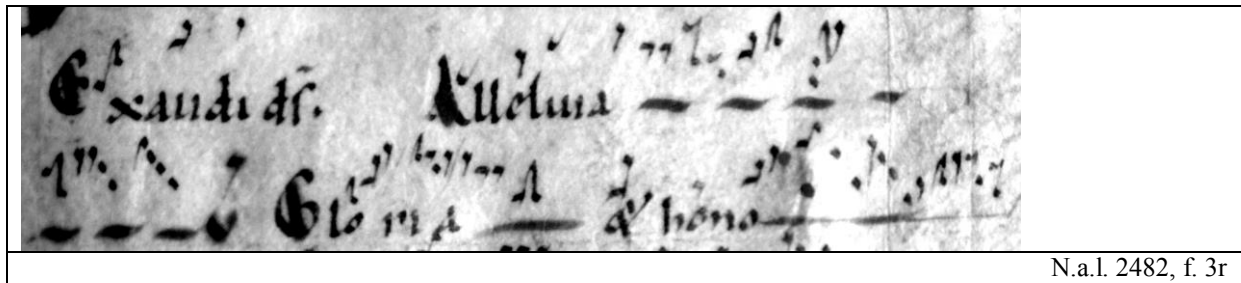 Exaudi d̄s. Alleluia
V Glo ri a & hono
N.a.l. 2482, f. 3r